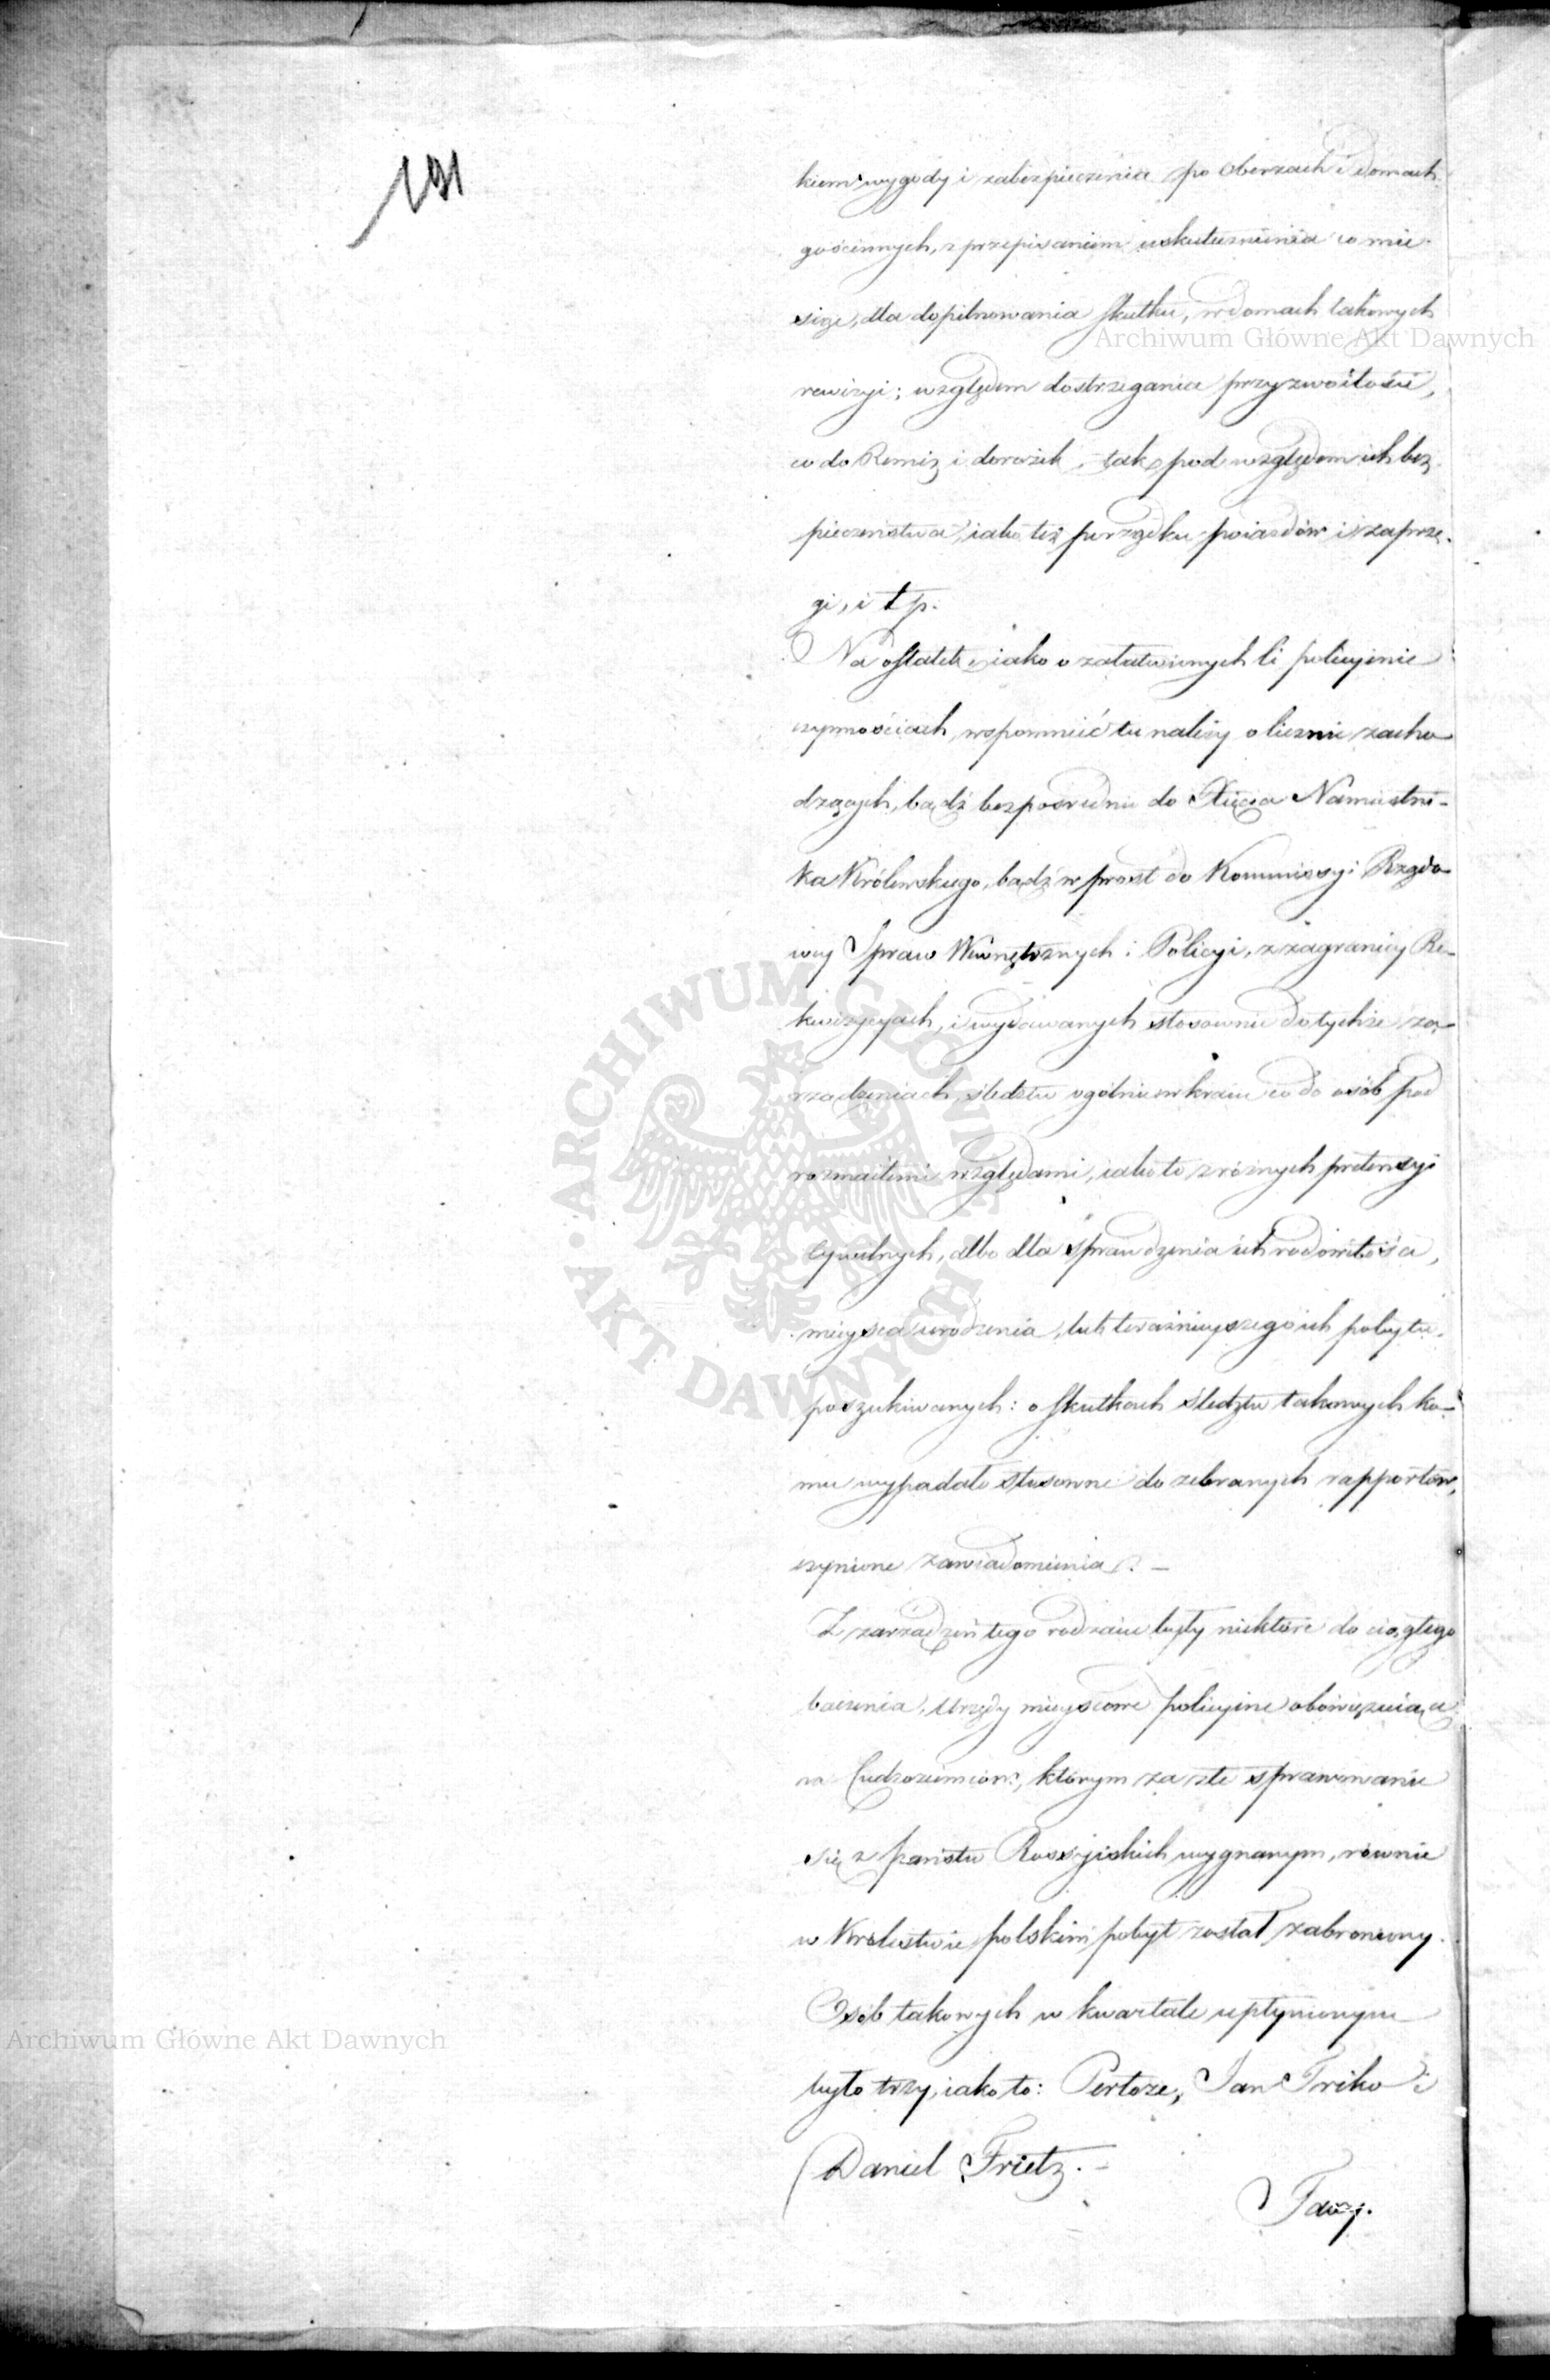 191
kiem wygody i zabezpieczenia po Oberzach i domach
gościnnych, z przepisaniem uskutecznienia co mie-
siąc, dla dopilnowania skutku, w domach takowych
Archiwum Główne Akt Dawnych
rewizyi; względem dostrzegania przyzwoitości,
co do Remiz i dorożek, tak pod względem ich bez-
pieczeństwa, iako też porządku poiazdów i zaprzę-
gi, i t p.
Na ostatek, iako o załatwionych li policyinie
czynnościach, wspomnieć tu należy o licznie zacho-
dzących, bądź bezpośrednio do Xięcia Namiestni-
ka Królewskiego, bądź wprost do Kommissyi Rządo-
wey Spraw Wewnętrznych i Policyi, z zagranicy Re-
kwizycyach, i wydawanych stosownie do tychże za-
rządzeniach, śledztw ogólnie w kraiu co do osób pod
rozmaitemi względami, iako to z różnych pretensyi
Cywilnych, albo dla sprawdzenia ich rodowitości,
mieysca urodzenia, lub teraźnieyszego ich pobytu,
poszukiwanych: o skutkach śledztw takowych ko-
mu wypadało stosowne do zebranych rapportów,
czynione zawiadomienia. —
Z zarządzeń tego rodzaiu były niektóre do ciągłego
baczenia, Urzędy mieyscowe policyine obowiązuiące
na Cudzoziemców, którym za złe sprawowanie
się z państw Rossyiskich wygnanym, równie
w Królestwie polskim pobyt został zabroniony.
Osób takowych w kwartale upłynionym
Archiwum Główne Akt Dawnych
było trzy, iako to: Pertoze, Jan Triko i
Daniel Frietz. —
ARCHIWUM GŁÓWNE AKT DAWNYCH